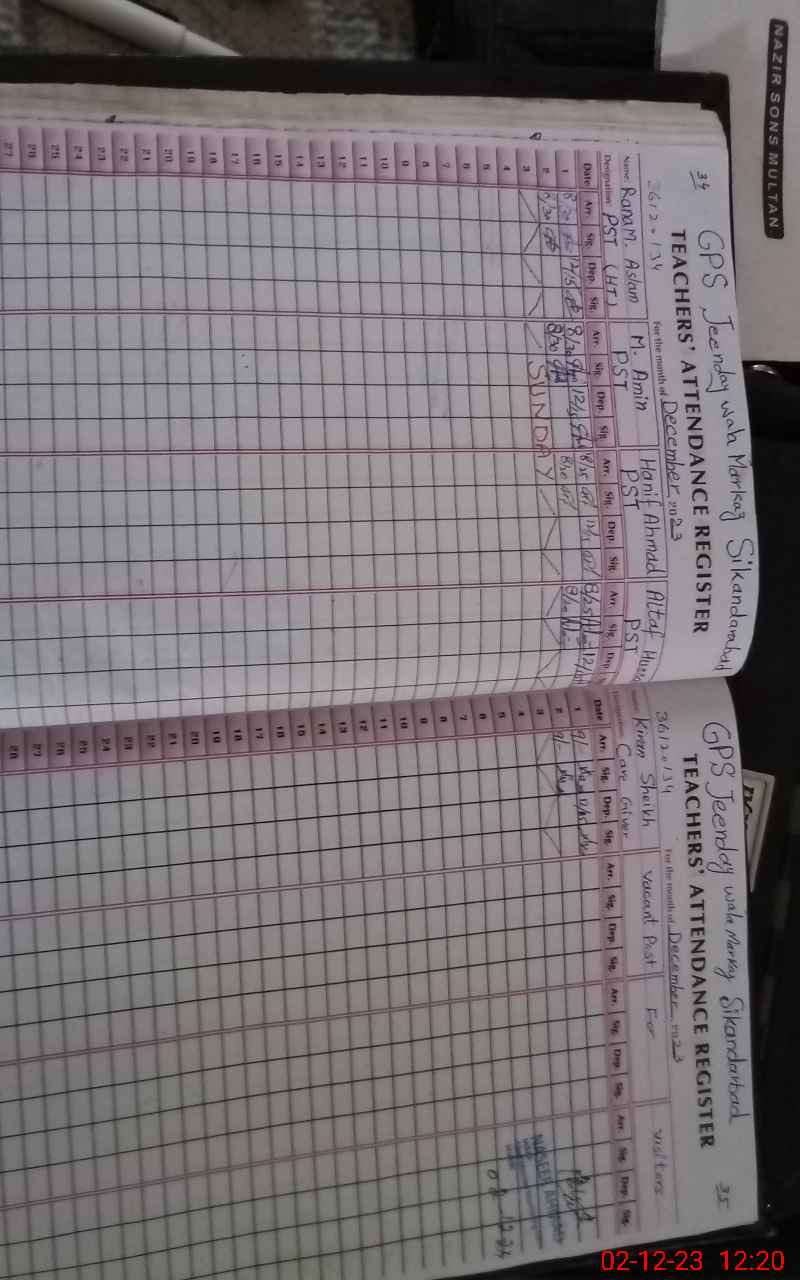 NAZIR SONS MULTAN
34
GPS Jeenday wala Markaz Sikandarabad
TEACHERS' ATTENDANCE REGISTER
36120134 For the month of December 2023
Name Rana M. Aslam M. Amin Hanif Ahmad Altaf
Designation PST (HT) PST PST PST
Date Arr. Sig. Dep. Sig. Arr. Sig. Dep. Sig. Arr. Sig. Dep. Sig. Arr. Sig. Dep.
1 8/30 12/15 8/30 12/15 8/25 12/15 8/25
2 8/30 8/30 8/20 8/20
3 SUNDAY
4
5
6
7
8
9
10
11
12
13
14
15
16
17
18
19
20
21
22
23
24
25
26
27
35
GPS Jeenday wala Markaz Sikandarbad
TEACHERS' ATTENDANCE REGISTER
36120134 For the month of December 2023
Kiran Sheikh Vacant Post For Visitors
Designation Care Giver
Date Arr. Sig. Dep. Sig. Arr. Sig. Dep. Sig. Arr. Sig. Dep. Sig. Arr. Sig. Dep. Sig.
1 9/- 12/15
2 9/-
3
4
5
6
7
8
9
10
11
12
13
14
15
16
17
18
19
20
21
22
23
24
25
26
27
28
02-12-23 12:20